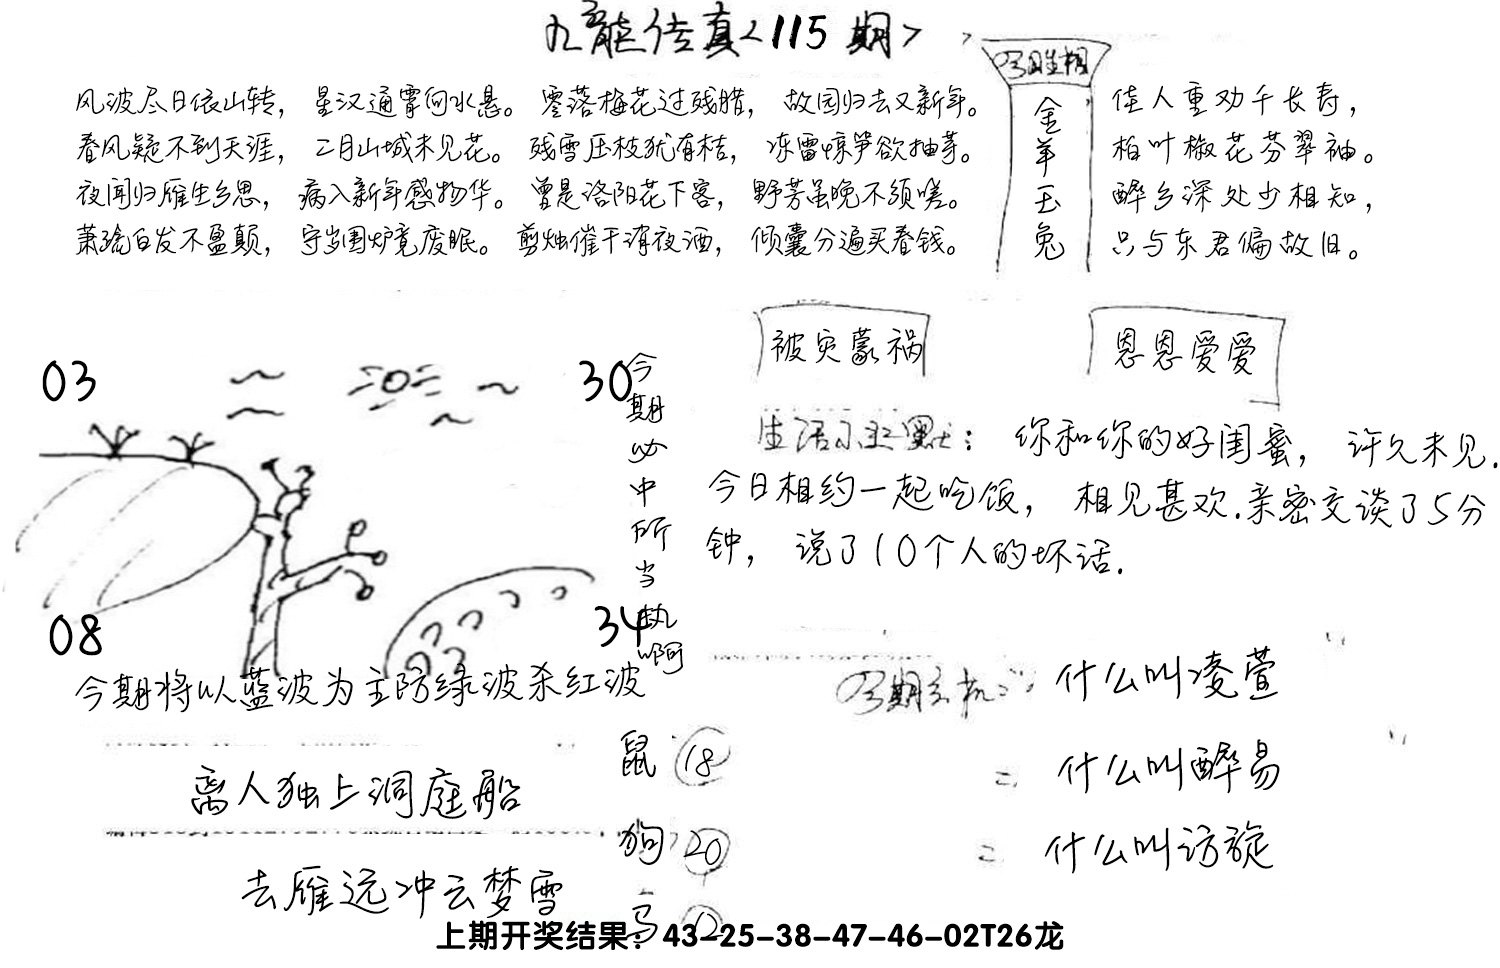 九龍传真<115期>
今期生相
金羊玉兔
风波尽日依山转，星汉通霄向水悬。零落梅花过残腊，故园归去又新年。
春风疑不到天涯，二月山城未见花。残雪压枝犹有桔，冻雷惊笋欲抽芽。
夜闻归雁生乡思，病入新年感物华。曾是洛阳花下客，野芳虽晚不须嗟。
萧疏白发不盈颠，守岁围炉竟废眠。剪烛催干消夜酒，倾囊分遍买春钱。
佳人重劝千长寿，
柏叶椒花芬翠袖。
醉乡深处少相知，
只与东君偏故旧。
03
30
08
34
今期必中所当执啊
今期将以蓝波为主防绿波杀红波
被灾蒙祸
恩恩爱爱
生活小幽默：你和你的好闺蜜，许久未见.
今日相约一起吃饭，相见甚欢.亲密交谈了5分
钟，说了10个人的坏话.
今期玄机：什么叫凌萱
= 什么叫醉易
= 什么叫访旋
离人独上洞庭船
去雁远冲云梦雪
鼠 18
狗 20
马 12
上期开奖结果：43-25-38-47-46-02T26龙